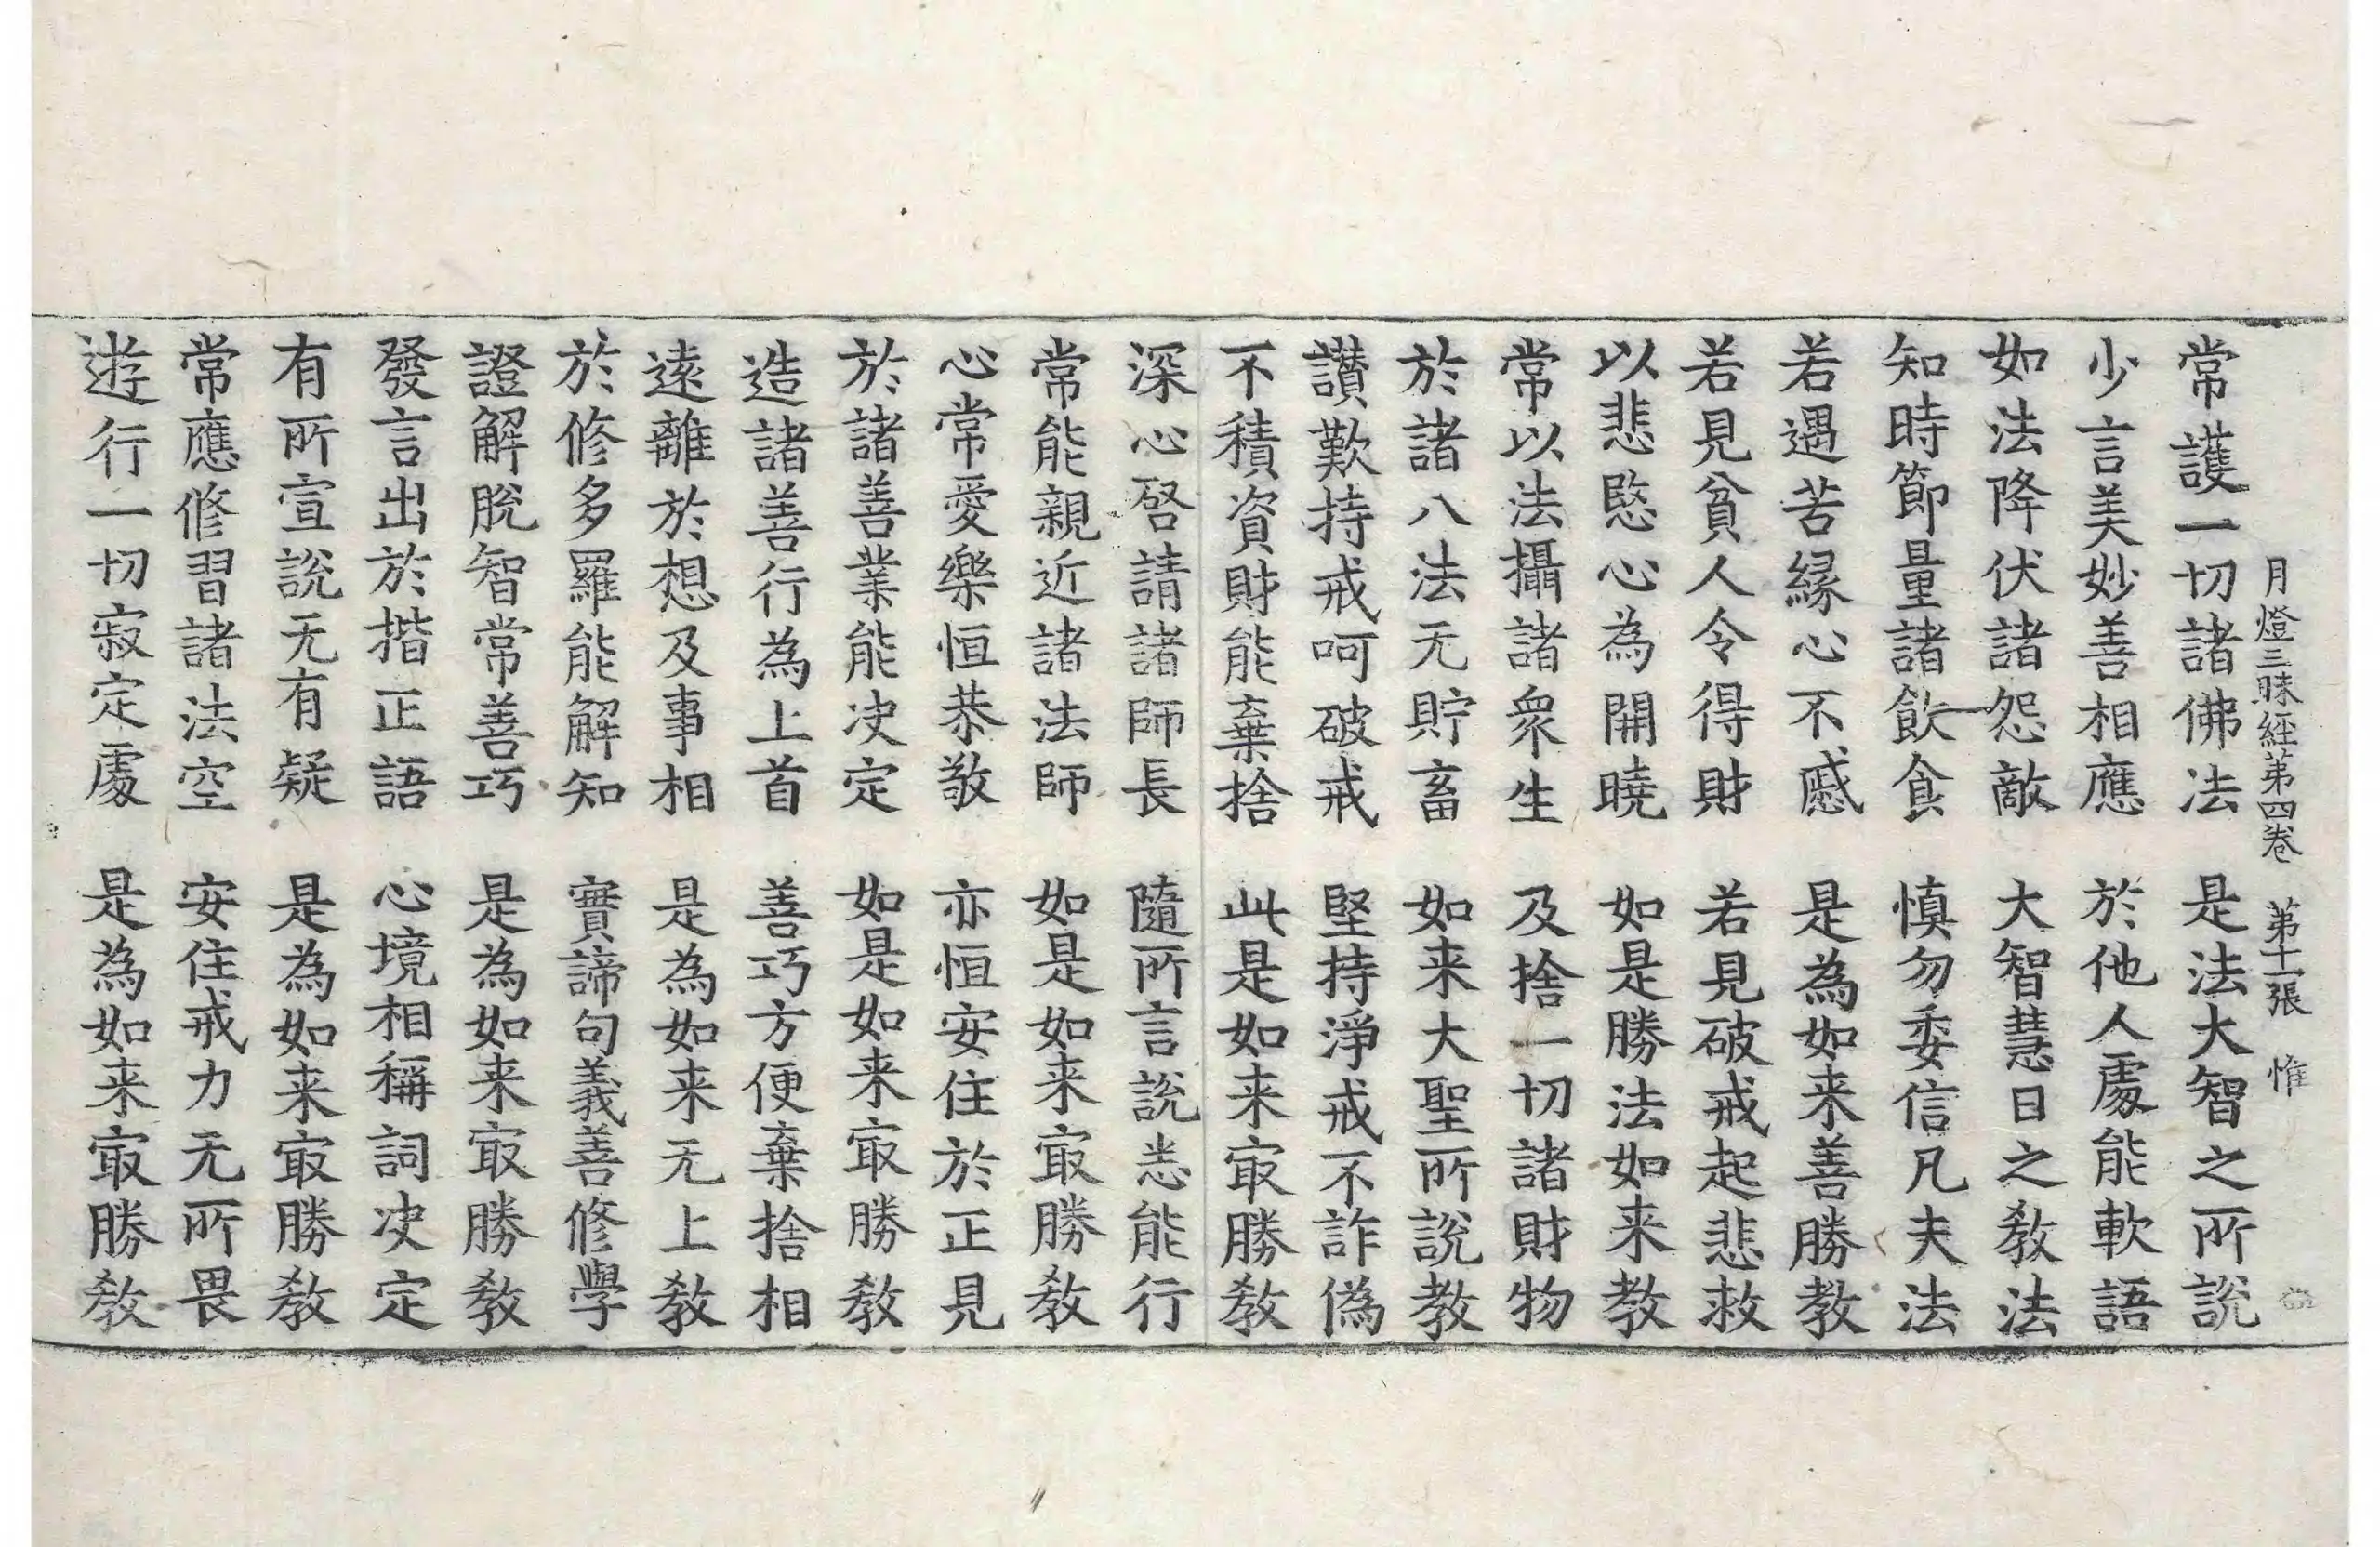 月燈三昧經第四卷　第十一張　惟
常護一切諸佛法　是法大智之所說
少言美妙善相應　於他人處能軟語
如法降伏諸怨敵　大智慧日之教法
知時節量諸飲食　慎勿委信凡夫法
若遇苦緣心不慼　是為如来善勝教
若見貧人令得財　若見破戒起悲救
以悲愍心為開曉　如是勝法如来教
常以法攝諸眾生　及捨一切諸財物
於諸八法无貯畜　如来大聖所說教
讃歎持戒呵破戒　堅持淨戒不詐偽
不積資財能棄捨　此是如来㝡勝教
深心啓請諸師長　隨所言說悉能行
常能親近諸法師　如是如来㝡勝教
心常愛樂恒恭敬　亦恒安住於正見
於諸善業能决定　如是如来㝡勝教
造諸善行為上首　善巧方便棄捨相
遠離於想及事相　是為如来无上教
於修多羅能解知　實諦句義善修學
證解脫智常善巧　是為如来㝡勝教
發言出於揩正語　心境相稱詞决定
有所宣說无有疑　是為如来㝡勝教
常應修習諸法空　安住戒力无所畏
遊行一切寂定處　是為如来㝡勝教